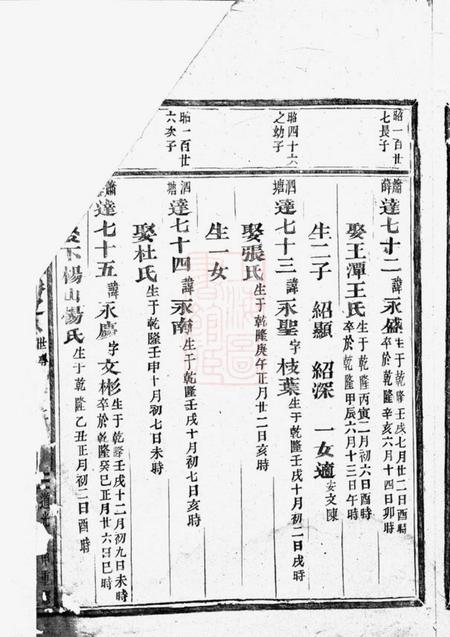 昭一百廿七長子
蕭薛
達七十二諱永盛生于乾隆壬戌七月廿二日酉時卒於乾隆辛亥六月十四日卯時
娶王潭王氏生于乾隆丙寅二月初六日酉時卒於乾隆甲辰六月十三日午時
生二子 紹顯 紹深 一女適安文陳
昭四十六之幼子
泗塘
達七十三諱永聖字枝葉生于乾隆壬戌十月初二日戌時
娶張氏生于乾隆庚午正月廿二日亥時
生一女
昭一百廿六次子
泗塘
達七十四諱永南生于乾隆壬戌十月初七日亥時
娶杜氏生于乾隆壬申十月初七日未時
蕭
達七十五諱永慶字文彬生于乾隆壬戌十二月初九日未時卒於乾隆癸巳正月廿六日巳時
娶下楊山楊氏生于乾隆乙丑正月初二日酉時
世傳
道光